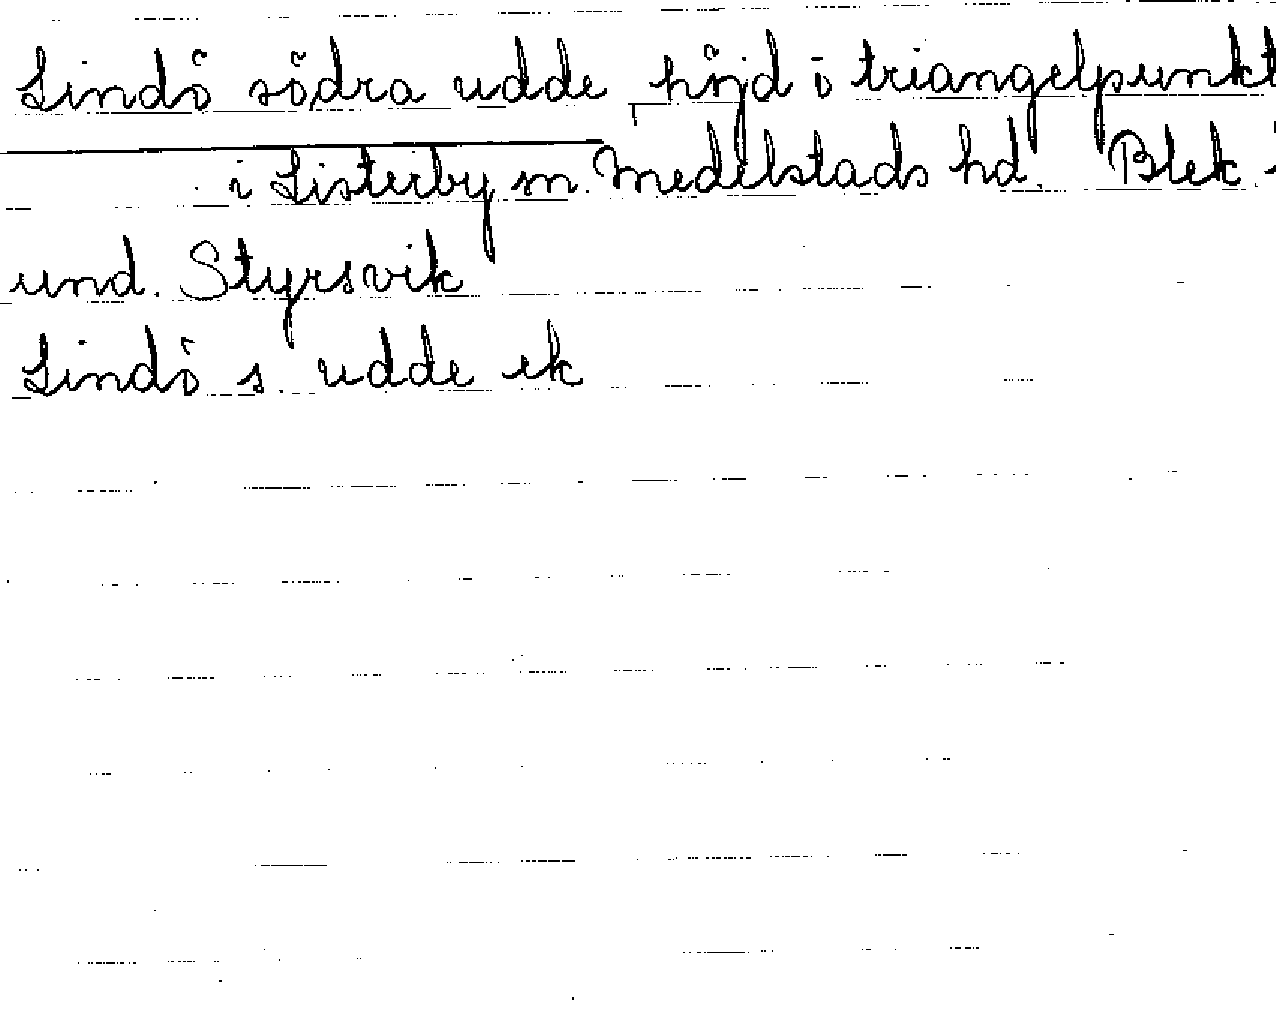 Lindö södra udde, höjd o triangelpunkt
i Listerby sn. Medelstads hd. Blek.
und. Styrsvik
Lindö s. udde ek